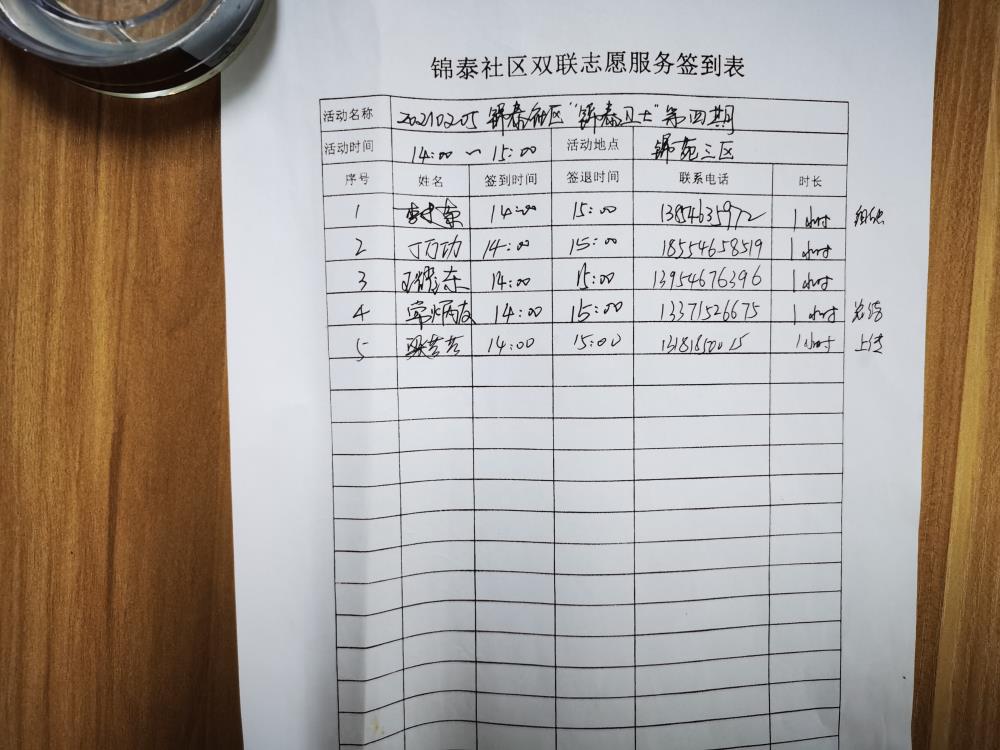 锦泰社区双联志愿服务签到表
活动名称 20210205 锦泰社区"锦泰卫士"第四期
活动时间 14:00~15:00 活动地点 锦苑三区
序号 姓名 签到时间 签退时间 联系电话 时长
1 14:00 15:00 13854635972 1小时 组织
2 丁万功 14:00 15:00 18554658519 1小时
3 东 14:00 15:00 13954676396 1小时
4 14:00 15:00 13371526675 1小时 总结
5 14:00 15:00 1小时 上传